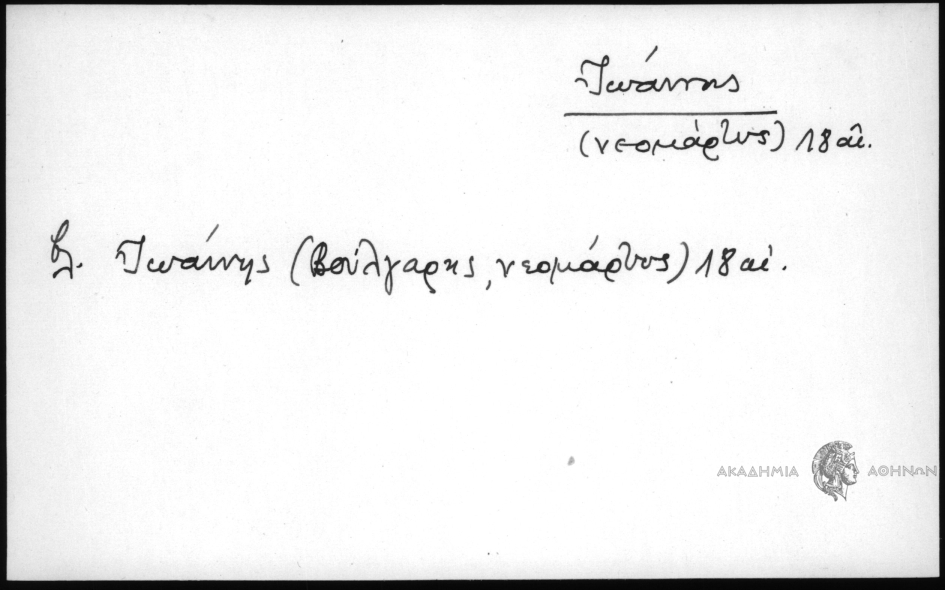 Ἰωάννης
(νεομάρτυς) 18 αἰ.
βλ. Ἰωάννης (Βούλγαρης, νεομάρτυς) 18 αἰ.
ΑΚΑΔΗΜΙΑ ΑΘΗΝΩΝ